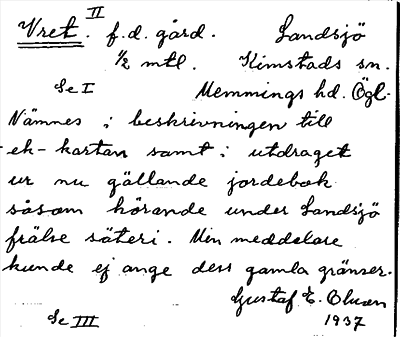 Vret. II f.d. gård. Landsjö
1/2 mtl. Kimstads sn.
Se I Memmings hd. Ögl.
Nämnes i beskrivningen till
ek-kartan samt i utdraget
ur nu gällande jordebok
såsom hörande under Landsjö
frälse säteri. Min meddelare
kunde ej ange dess gamla gränser.
Gustaf E. Olsson
Se III 1937